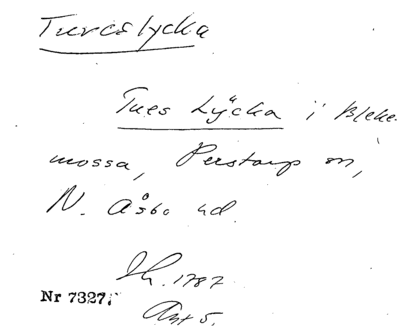 Tureslycka
Tues Lÿcka i Bleke-
mossa, Perstorp sn,
N. Åsbo hd.
Sk. 1787
Nr 7327.
Akt 5.